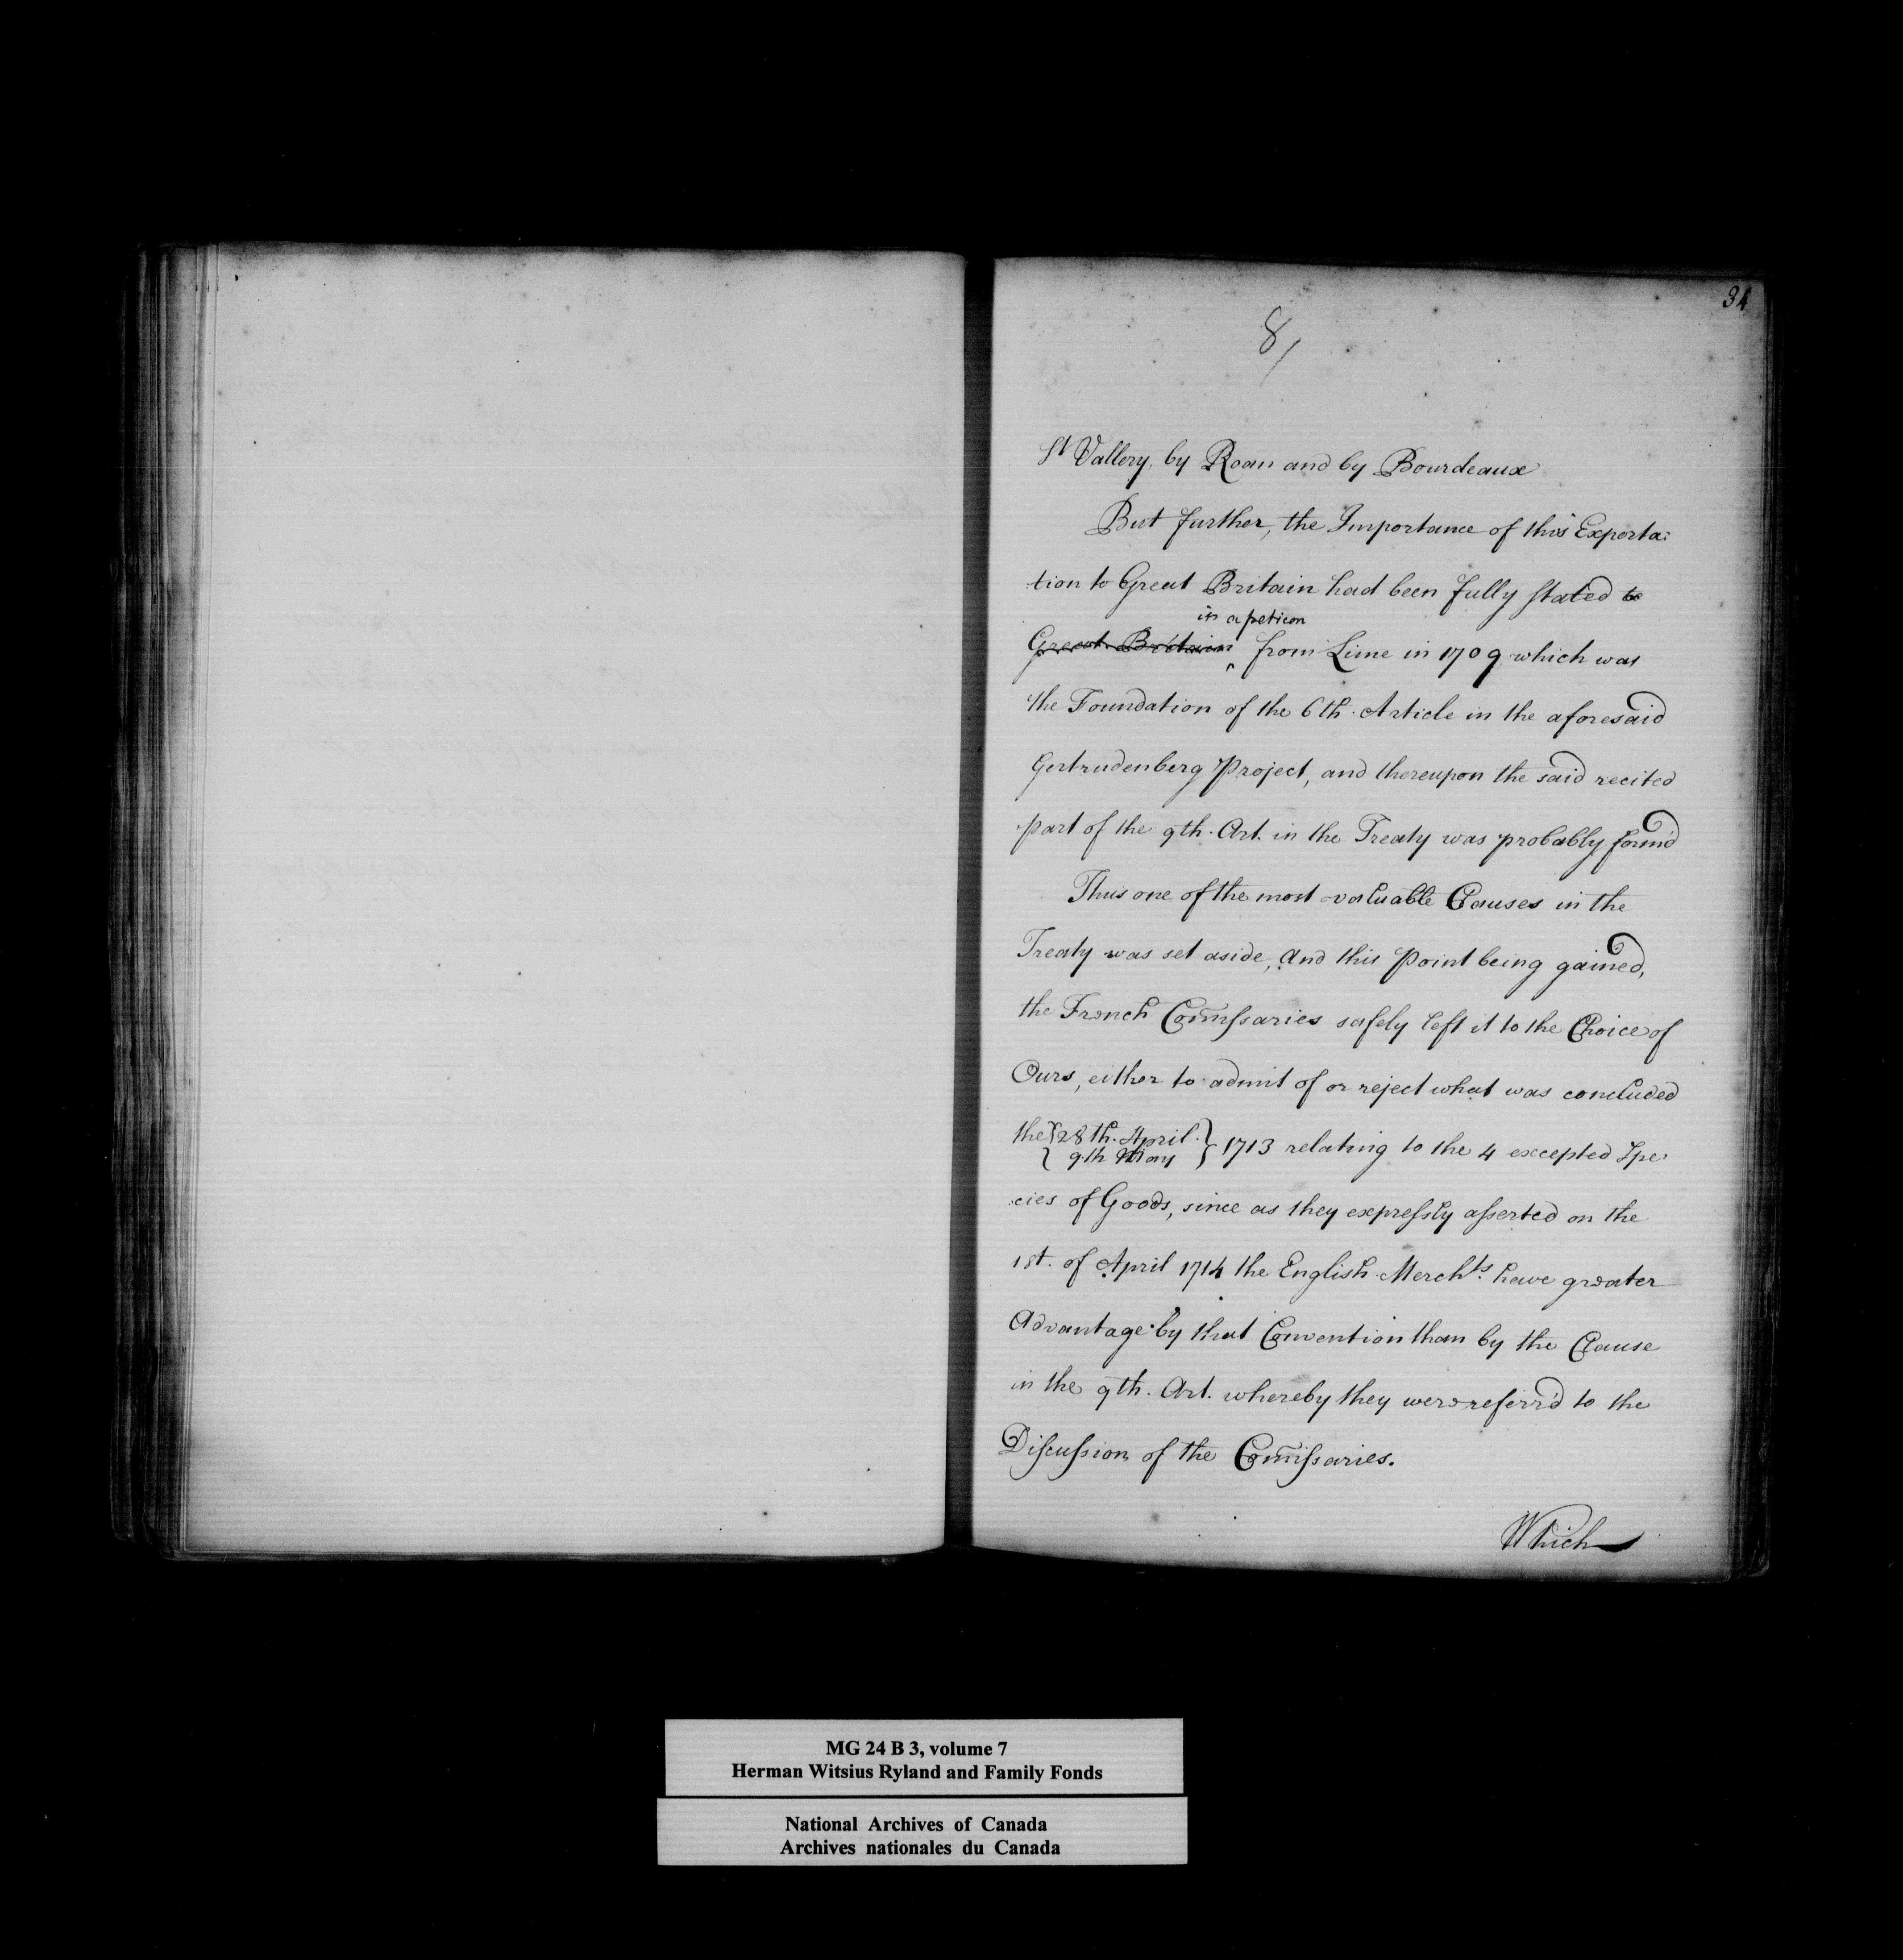 34
8/
St Vallery, by Roan and by Bourdeaux
But further, the Importance of this Exporta:
tion to Great Britain had been fully stated to
in a peticon
Great Britain ^ from Lime in 1709 which was
the Foundation of the 6th. Article in the aforesaid
Gertrudenberg Project, and thereupon the said recited
part of the 9th. Art. in the Treaty was probably form'd
Thus one of the most valuable Clauses in the
Treaty was set aside, and this Point being gained,
the French Com̄issaries safely left it to the Choice of
Ours, either to admit of or reject what was concluded
the {28th. April. / 9th May} 1713 relating to the 4 excepted Spe:
cies of Goods, since as they expressly asserted on the
1st. of April 1714 the English Merchts. have greater
Advantage by that Convention than by the Clause
in the 9th. Art. whereby they were referr'd to the
Discussion of the Com̄issaries.
Which
MG 24 B 3, volume 7
Herman Witsius Ryland and Family Fonds
National Archives of Canada
Archives nationales du Canada